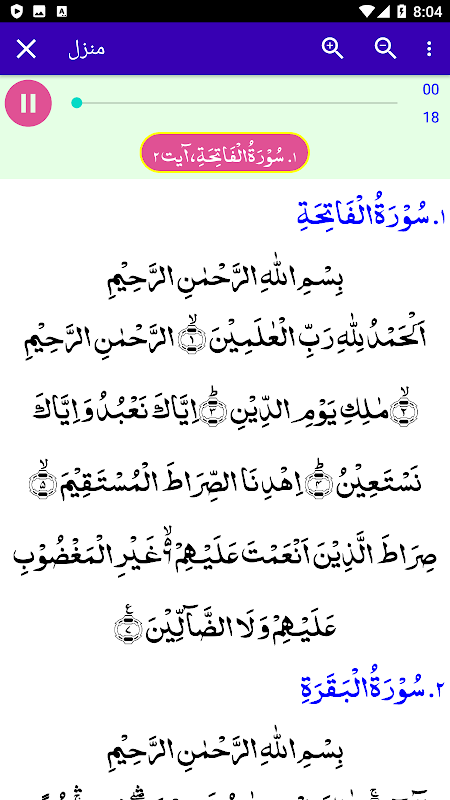 8:04
منزل
00
18
۱. سُوْرَةُ الْفَاتِحَةِ، آیت ۲
۱. سُوْرَةُ الْفَاتِحَةِ
بِسْمِ اللّٰهِ الرَّحْمٰنِ الرَّحِيْمِ
اَلْحَمْدُ لِلّٰهِ رَبِّ الْعٰلَمِيْنَ ۙ﴿۱﴾ الرَّحْمٰنِ الرَّحِيْمِ
ۙ﴿۲﴾ مٰلِكِ يَوْمِ الدِّيْنِ ؕ﴿۳﴾ اِيَّاكَ نَعْبُدُ وَ اِيَّاكَ
نَسْتَعِيْنُ ؕ﴿۴﴾ اِهْدِنَا الصِّرَاطَ الْمُسْتَقِيْمَ ۙ﴿۵﴾
صِرَاطَ الَّذِيْنَ اَنْعَمْتَ عَلَيْهِمْ ۙ۬ۦ غَيْرِ الْمَغْضُوْبِ
عَلَيْهِمْ وَ لَا الضَّآلِّيْنَ ﴿۷﴾
۲. سُوْرَةُ الْبَقَرَةِ
بِسْمِ اللّٰهِ الرَّحْمٰنِ الرَّحِيْمِ